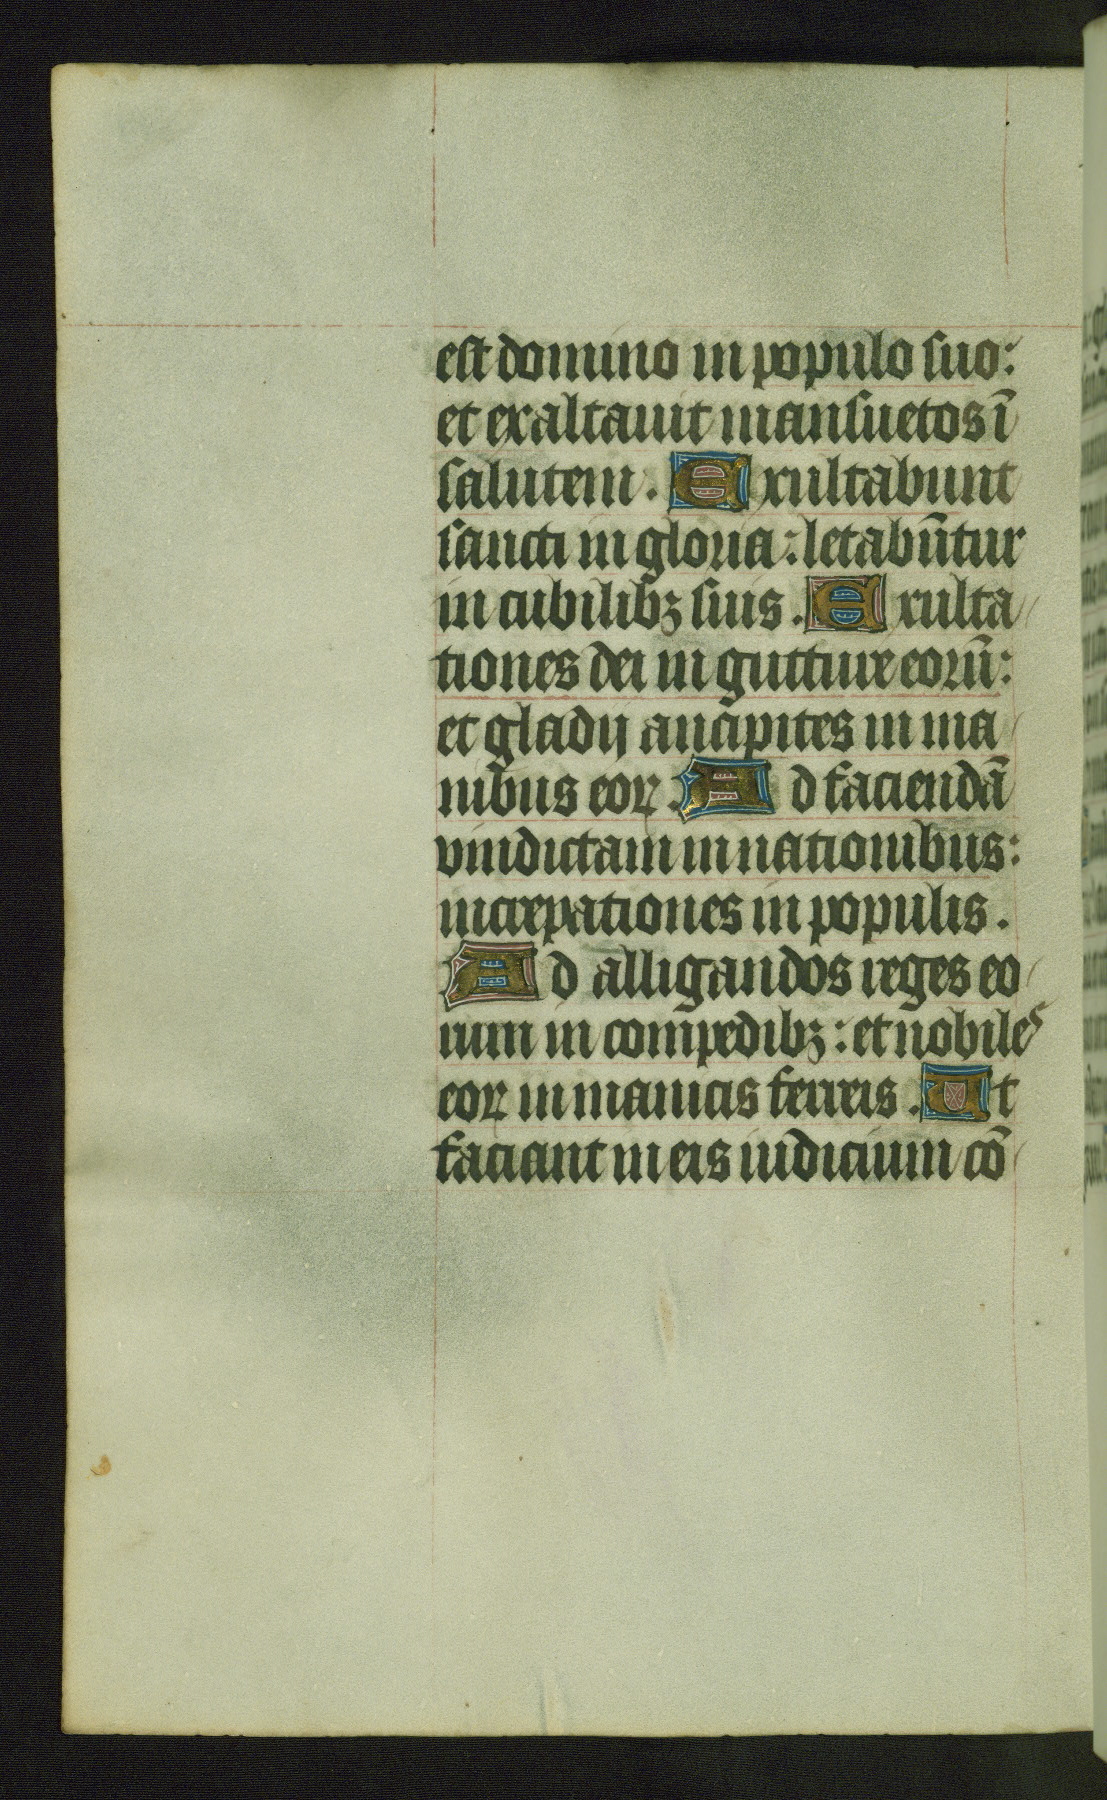 est domino in populo suo:
et exaltauit mansuetos ī
salutem. Exultabunt
sancti in gloria: letabūtur
in cubilibꝫ suis. Exulta
tiones dei in gutture eorū:
et gladij ancipites in ma
nibus eoꝝ. Ad faciendā
vindictam in nationibus:
increpationes in populis.
Ad alligandos reges eo
rum in compedibꝫ: et nobiles
eoꝝ in manicis ferreis. Ut
faciant in eis iudicium cō